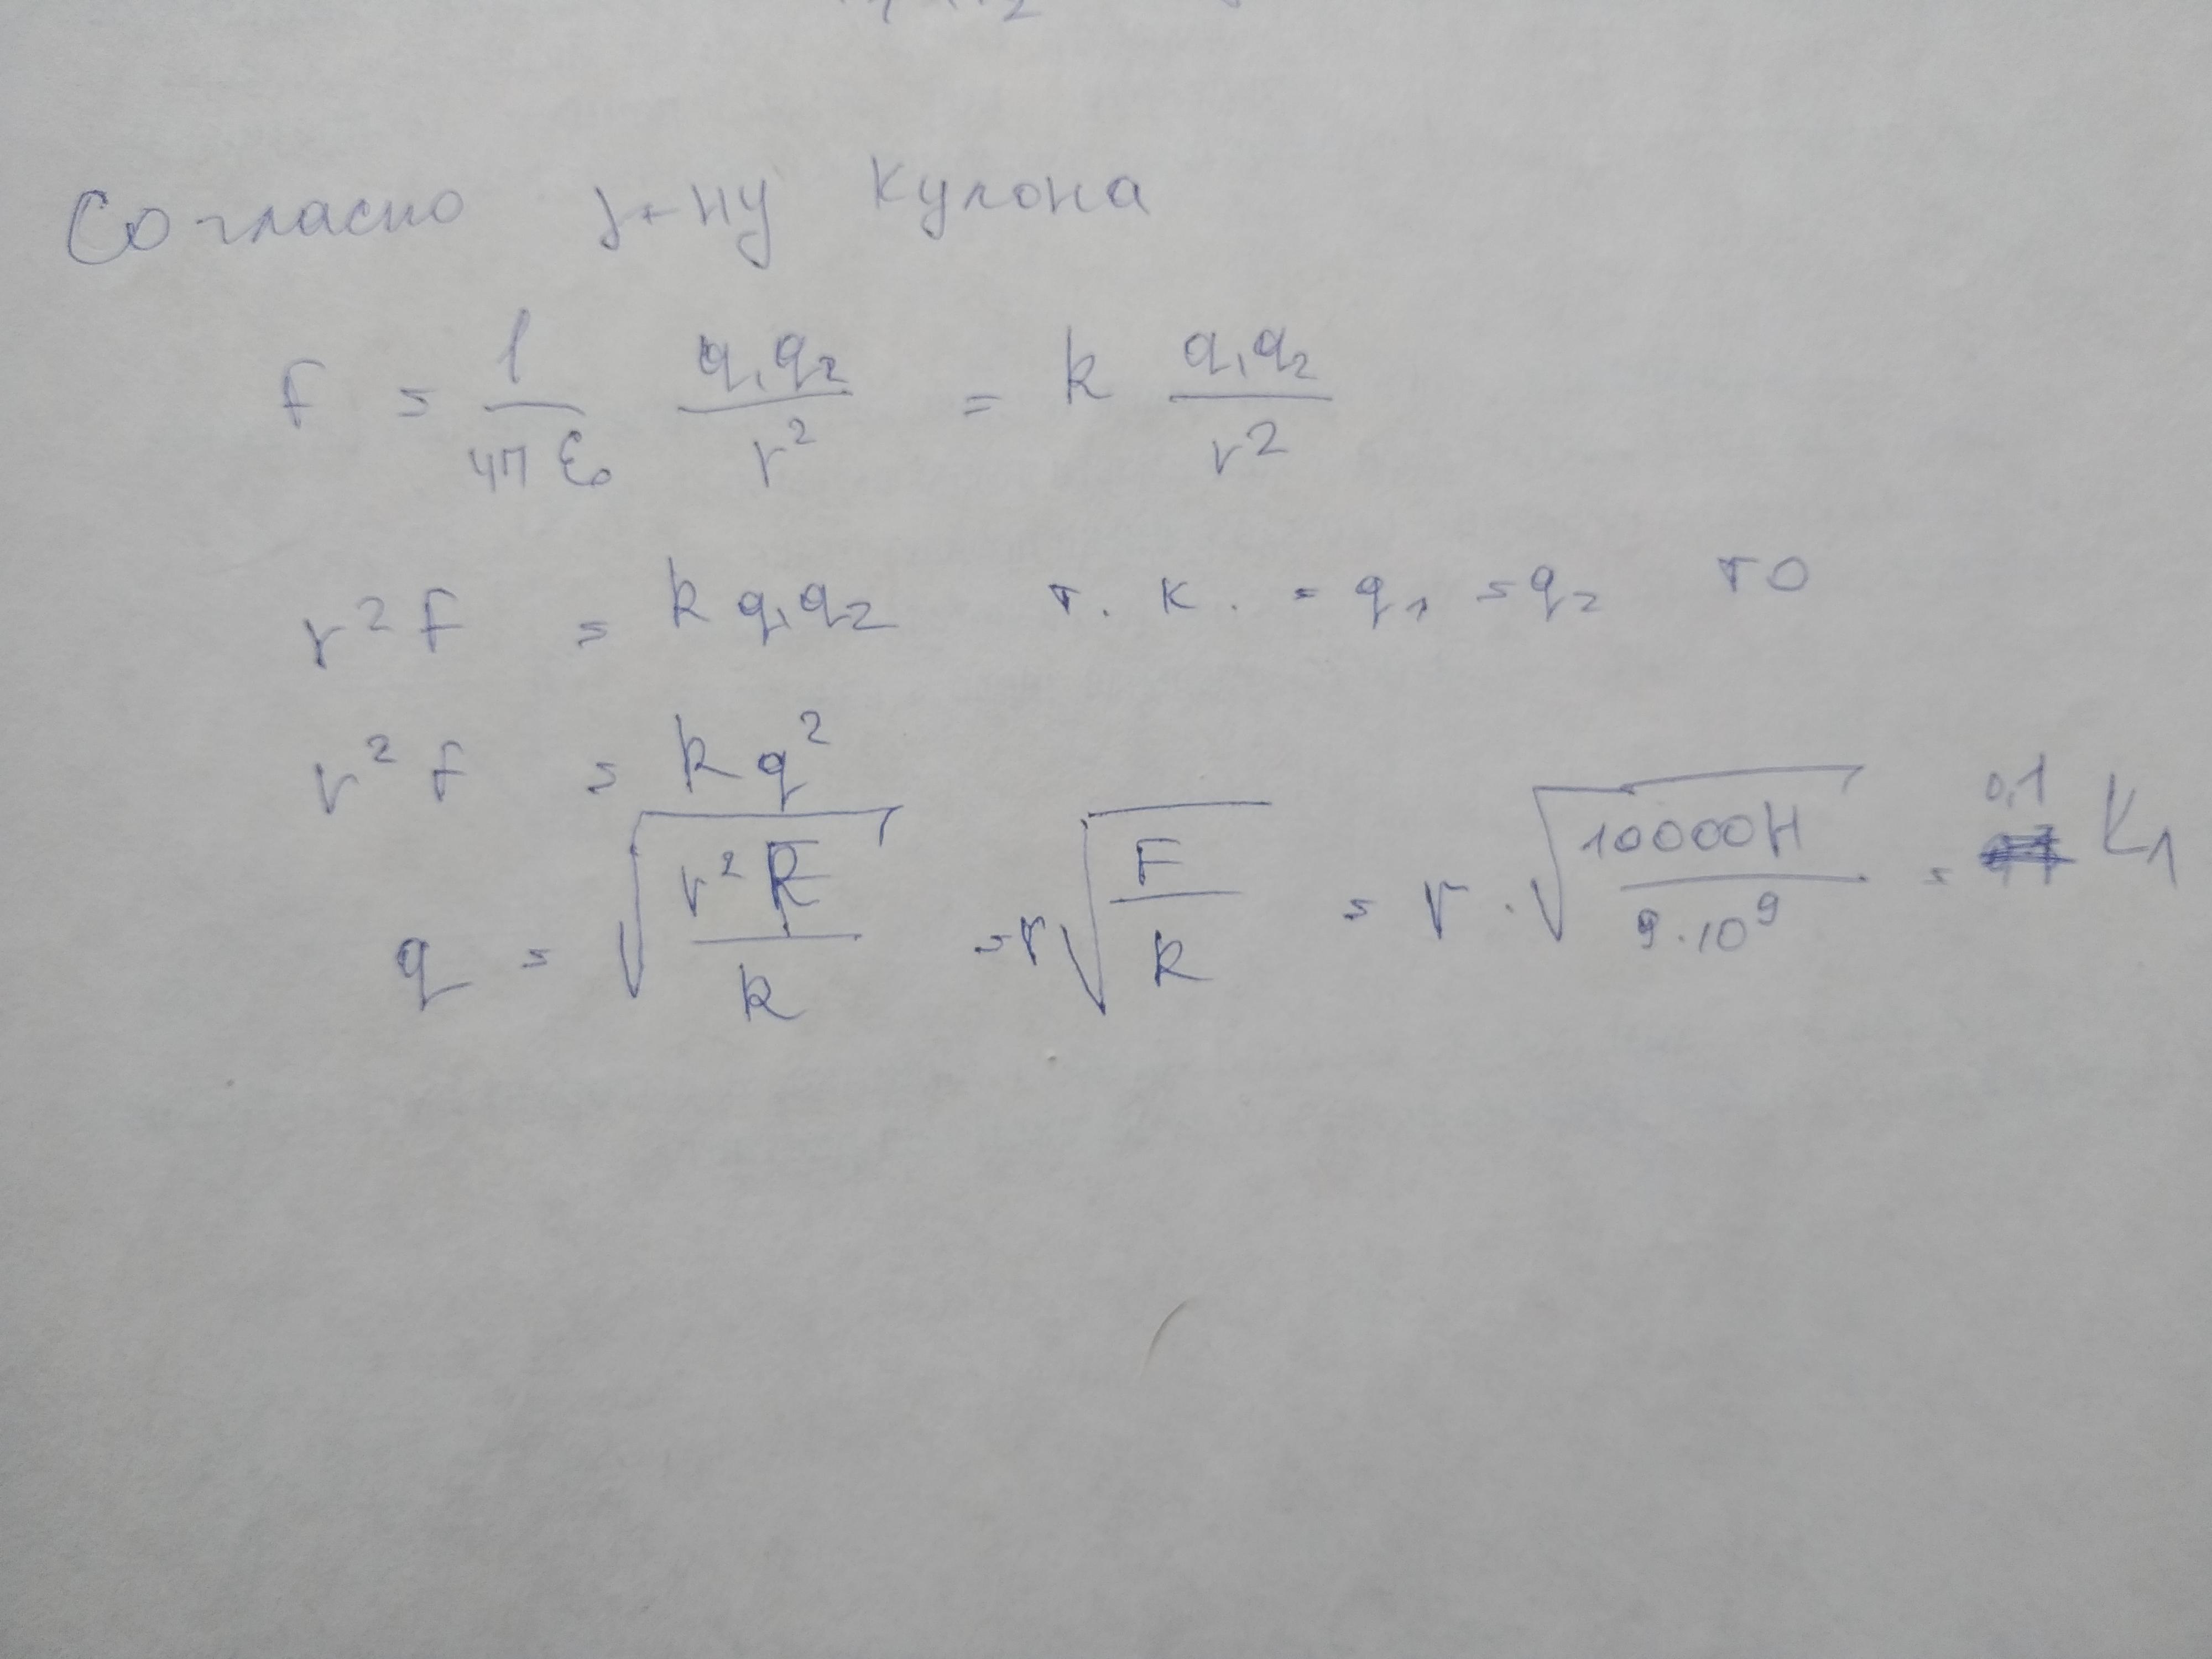 Согласно з-ну Кулона
F = 1/4πε₀ q₁q₂/r² = k q₁q₂/r²
r²F = kq₁q₂ т.к. = q₁ = q₂ то
r²F = kq²
q = √(r²F/k) = r√(F/k) = r·√(10000Н/9·10⁹) = 0,1 Кл